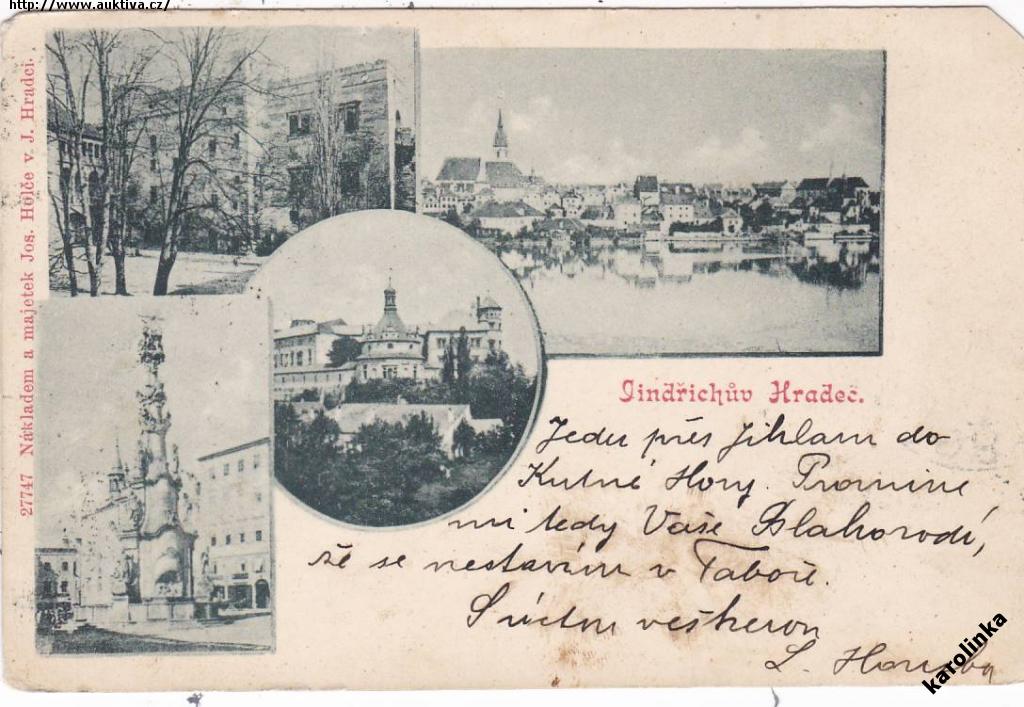 http://www.auktiva.cz/
27747 Nákladem a majetek Jos. Hölče v J. Hradci.
Jindřichův Hradec.
Jedu přes Jihlavu do
Kutné Hory. Promine
mi tedy Vaše Blahorodí,
že se nestavím v Táboře.
S úctou veškerou
L.
karolinka